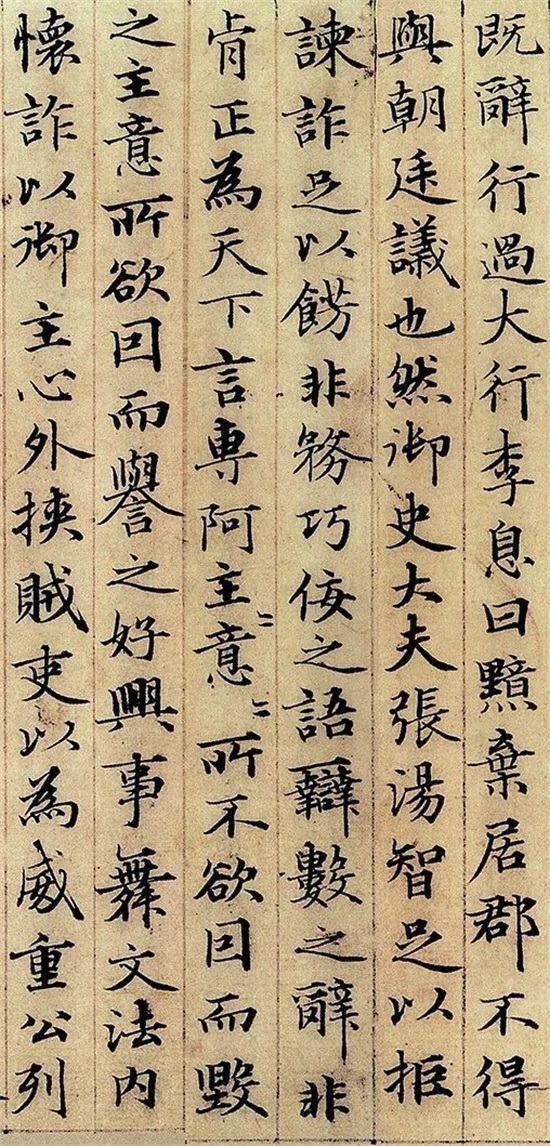 既辭行過大行李息曰黯棄居郡不得
與朝廷議也然御史大夫張湯智足以拒
諫詐足以餝非務巧佞之語辯數之辭非
肯正為天下言專阿主〻意〻所不欲因而毀
之主意所欲因而譽之好興事舞文法內
懷詐以御主心外挾賊吏以為威重公列